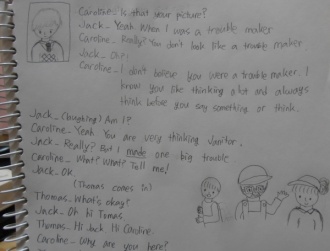 Caroline_ Is that your picture?
Jack_ Yeah. When I was a trouble maker
Caroline_ Really? You don't look like a trouble maker
Jack_
Caroline_ I don't believe you were a trouble maker. I
know you like thinking a lot and always
think before you say something or think.
Jack_ (laughing) Am I?
Caroline_ Yeah You are very thinking Janitor.
Jack_ Really? But I made one big trouble
Caroline_ What? What? Tell me!
Jack_ OK.
(Thomas comes in)
Thomas_ What's okay?
Jack_ Oh Hi Tomas.
Thomas_ Hi Jack Hi Caroline.
Caroline_ Why are you here?